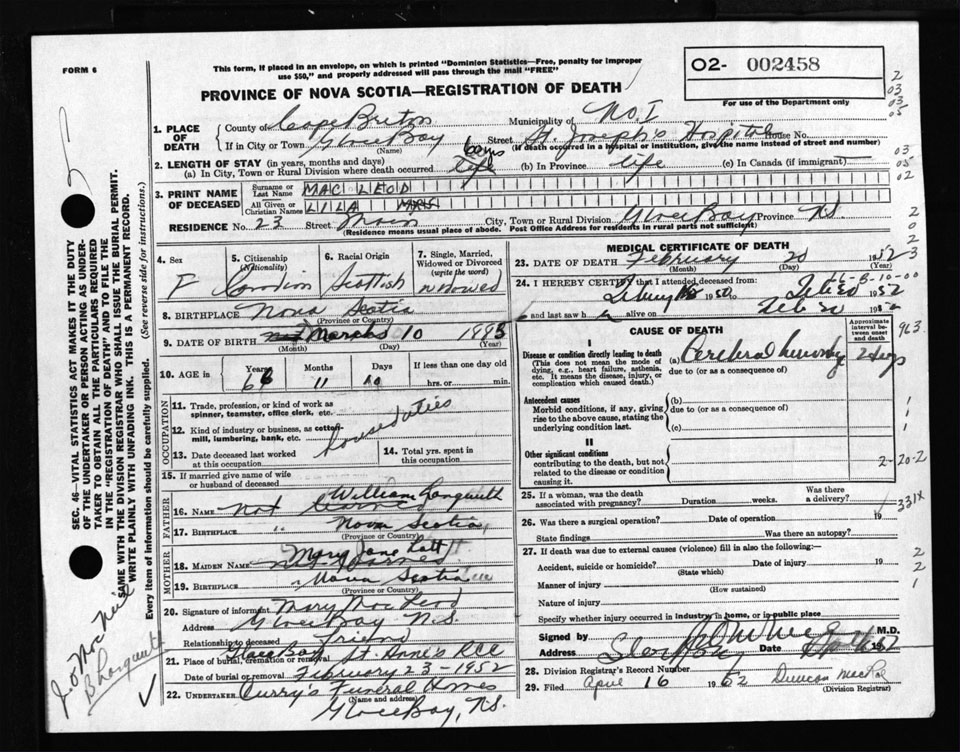 FORM 6
This form, if placed in an envelope, on which is printed "Dominion Statistics—Free, penalty for improper
use $50," and properly addressed will pass through the mail "FREE"
O2- 002458
For use of the Department only
PROVINCE OF NOVA SCOTIA—REGISTRATION OF DEATH
1. PLACE OF DEATH
County of Cape Breton Municipality of No. 1
If in City or Town Glace Bay (Name) Street St. Joseph's Hospital House No.
(If death occurred in a hospital or institution, give the name instead of street and number)
2. LENGTH OF STAY (in years, months and days)
(a) In City, Town or Rural Division where death occurred life (b) In Province life (c) In Canada (if immigrant) —
3. PRINT NAME OF DECEASED
Surname or Last Name MAC LEOD
All Given or Christian Names LILA MRS
RESIDENCE No. 23 Street Main City, Town or Rural Division Glace Bay Province N.S.
(Residence means usual place of abode. Post Office Address for residents in rural parts not sufficient)
4. Sex F
5. Citizenship (Nationality) Canadian
6. Racial Origin Scottish
7. Single, Married, Widowed or Divorced (write the word) widowed
8. BIRTHPLACE Nova Scotia
(Province or Country)
9. DATE OF BIRTH March 10 1883
(Month) (Day) (Year)
10. AGE in Years 68 Months 11 Days 10 If less than one day old hrs. or min.
OCCUPATION
11. Trade, profession, or kind of work as spinner, teamster, office clerk, etc.
12. Kind of industry or business, as cotton-mill, lumbering, bank, etc.
house duties
13. Date deceased last worked at this occupation
14. Total yrs. spent in this occupation
15. If married give name of wife or husband of deceased
FATHER
16. NAME William Langwith
17. BIRTHPLACE " Nova Scotia
(Province or Country)
MOTHER
18. MAIDEN NAME Mary Jane
19. BIRTHPLACE " Nova Scotia
(Province or Country)
20. Signature of informant Mary MacLeod
Glace Bay N.S.
Relationship to deceased Friend
21. Place of burial, cremation or removal Glace Bay St. Anne's
Date of burial or removal February 23-1952
22. UNDERTAKER Curry's Funeral Homes
(Name and address)
Glace Bay, N.S.
MEDICAL CERTIFICATE OF DEATH
23. DATE OF DEATH February 20 1952
(Month) (Day) (Year)
24. I HEREBY CERTIFY that I attended deceased from
1952 to Feb 20 1952
and last saw h alive on Feb 20 195
CAUSE OF DEATH
Approximate interval between onset and death
I
Disease or condition directly leading to death
(This does not mean the mode of dying, e.g., heart failure, asthenia, etc. It means the disease, injury, or complication which caused death.)
(a) Cerebral 2 days
due to (or as a consequence of)
Antecedent causes
Morbid conditions, if any, giving rise to the above cause, stating the underlying condition last.
(b)
due to (or as a consequence of)
(c)
II
Other significant conditions
contributing to the death, but not related to the disease or condition causing it.
25. If a woman, was the death associated with pregnancy? Duration weeks. Was there a delivery?
26. Was there a surgical operation? Date of operation 19
State findings Was there an autopsy?
27. If death was due to external causes (violence) fill in also the following:—
Accident, suicide or homicide? Date of injury 19
(State which)
Manner of injury
(How sustained)
Nature of injury
Specify whether injury occurred in industry, in home, or in public place
Signed by M.D.
Address Date
28. Division Registrar's Record Number
29. Filed April 16 1952 Duncan
(Division Registrar)
SEC. 46—VITAL STATISTICS ACT MAKES IT THE DUTY
OF THE UNDERTAKER OR PERSON ACTING AS UNDER-
TAKER TO OBTAIN ALL THE PARTICULARS REQUIRED
IN THE "REGISTRATION OF DEATH" AND TO FILE THE
SAME WITH THE DIVISION REGISTRAR WHO SHALL ISSUE THE BURIAL PERMIT.
WRITE PLAINLY WITH UNFADING INK. THIS IS A PERMANENT RECORD.
Every item of information should be carefully supplied. (See reverse side for instructions.)
2
03
03
05
03
05
02
2
0
2
3
66-3-10-00
963.
1
1
1
2-20-2
331X
2
2
1